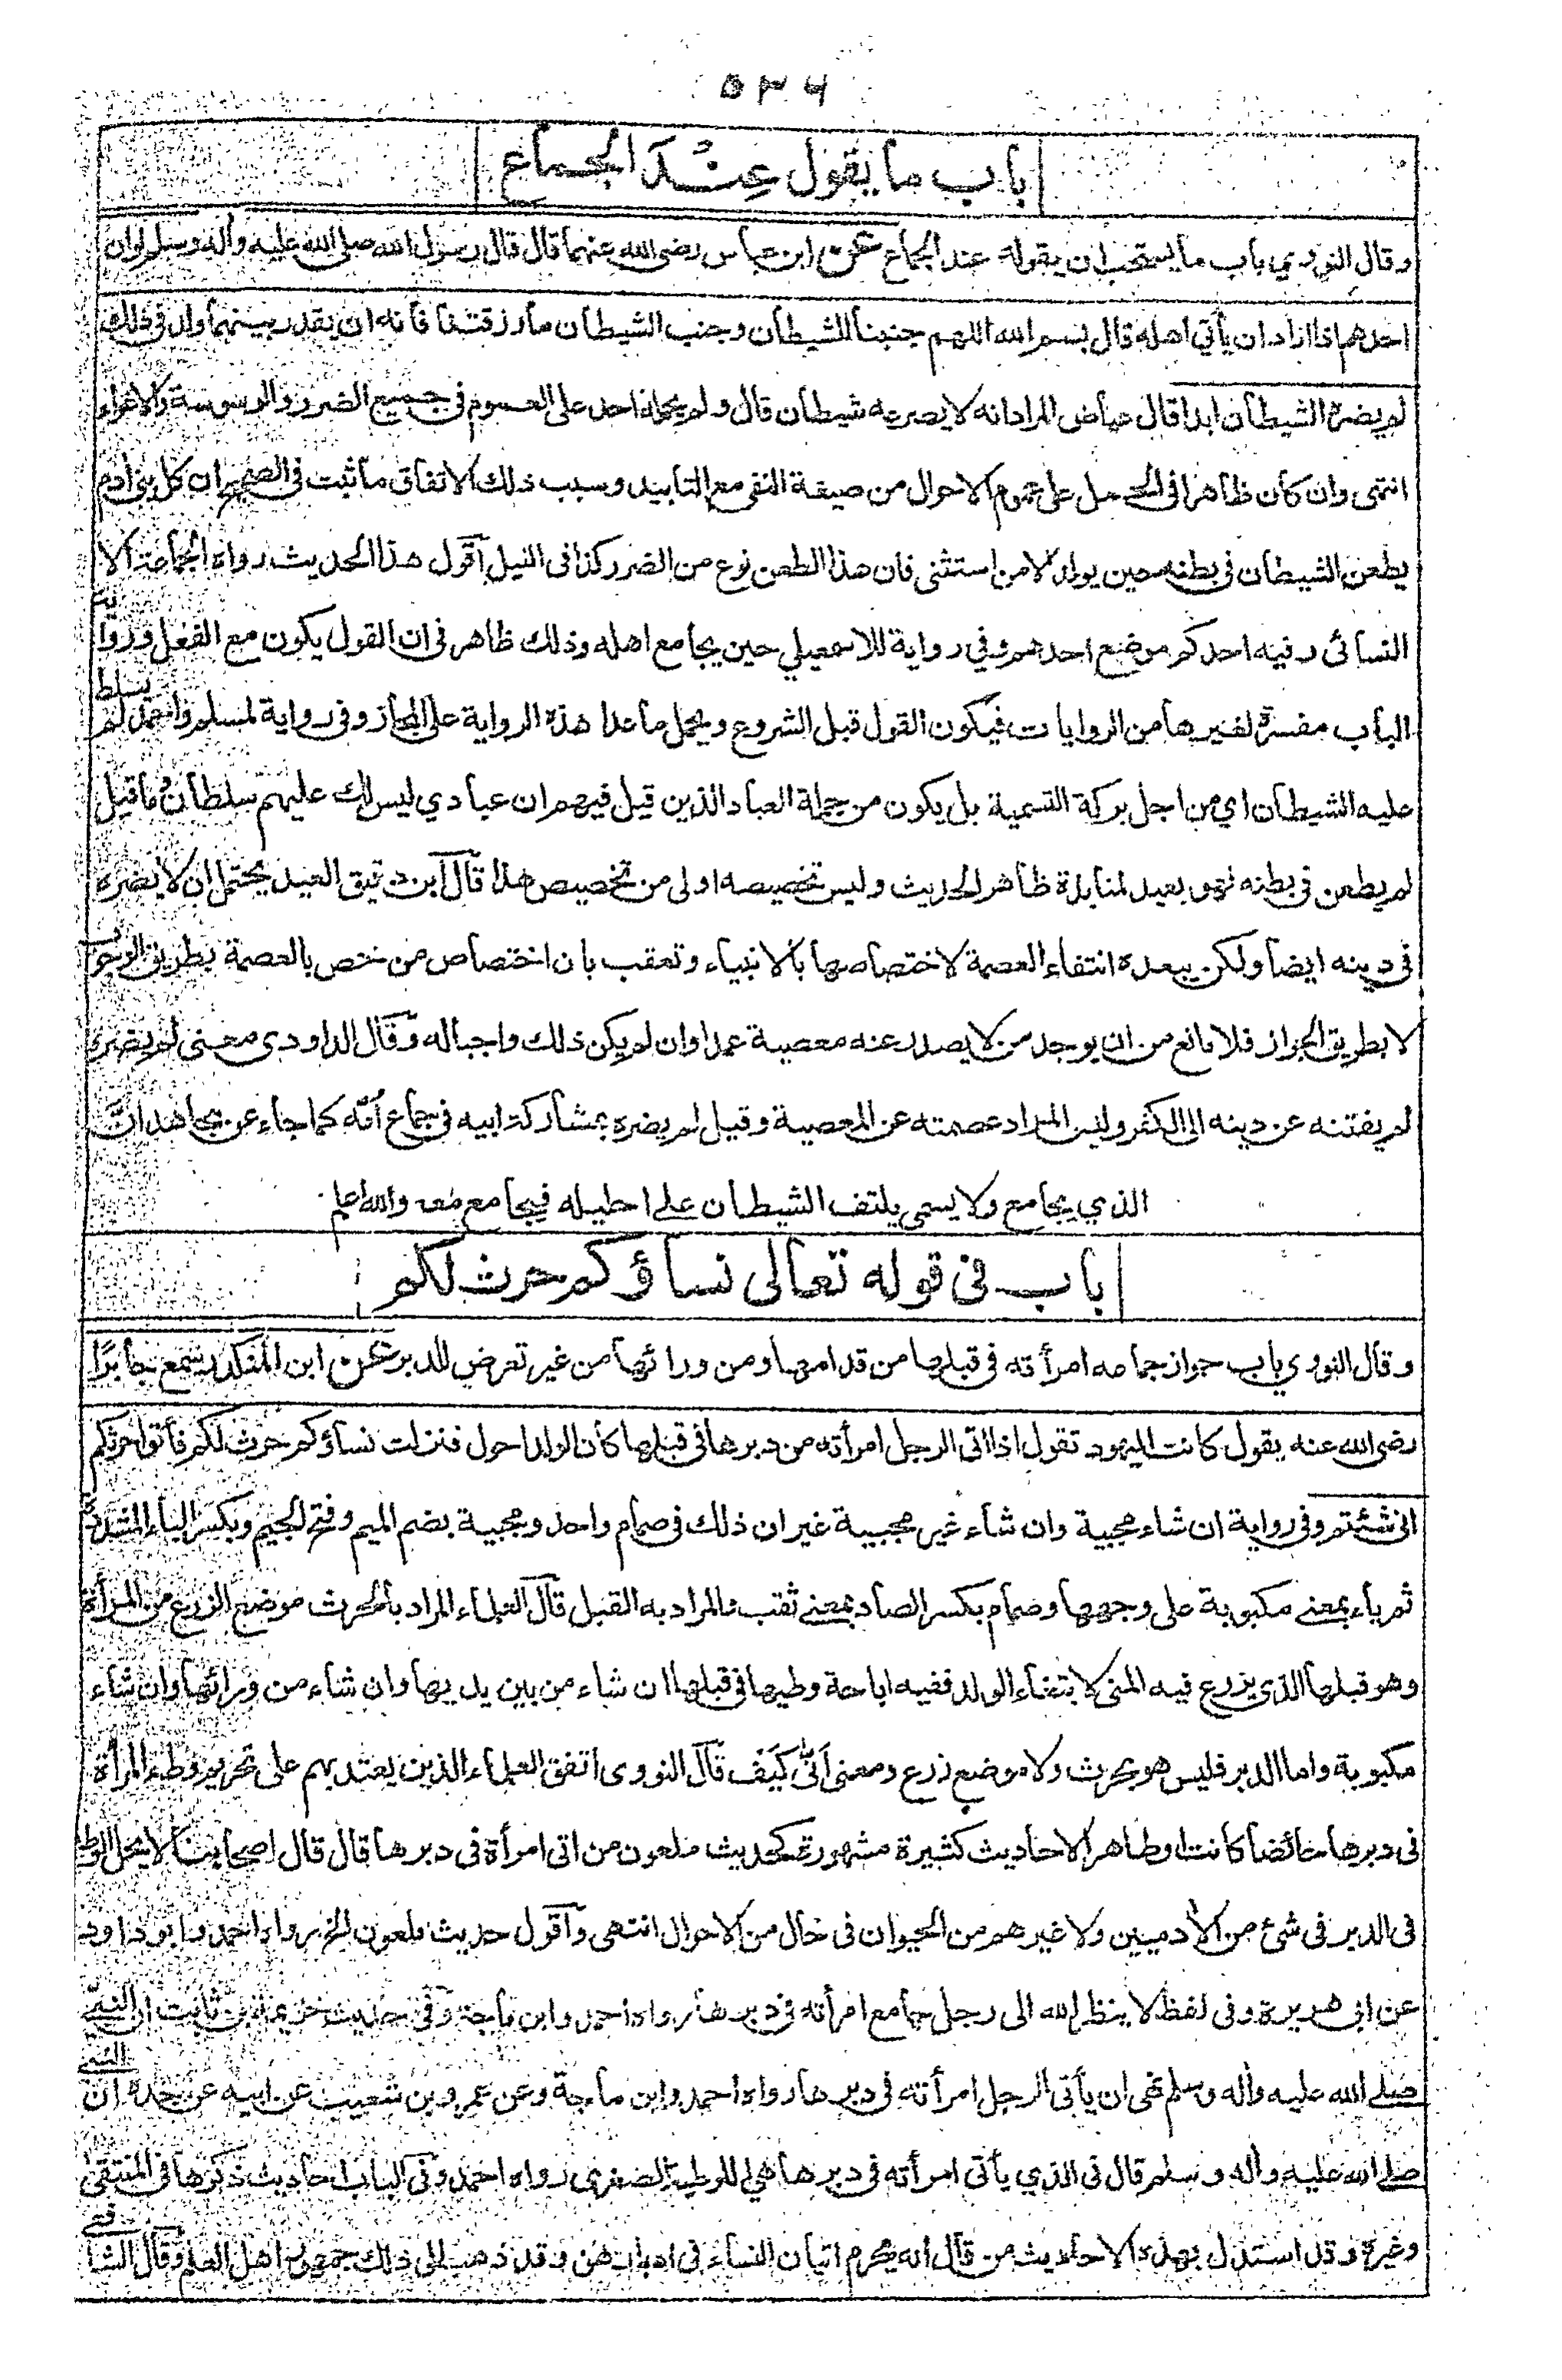 ٥٣٦
باب ما يقول عِنْدَ الجماع
وقال النووي باب ما يستحب ان يقوله عند الجماع عن ابن عباس رضى الله عنهما قال قال رسول الله صلى الله عليه وأله وسلم لو ان
احدهم اذا اراد ان يأتي اهله قال بسم الله اللهم جنبنا الشيطان وجنب الشيطان ما رزقتنا فانه ان يقدر بينهما ولد في ذلك
لم يضره الشيطان ابدا قال عياض المراد انه لا يصرعه شيطان قال ولم يحمله احد على العموم في جميع الضرر والوسوسة والاغواء
انتهى وان كان ظاهرا في الحمل على عموم الاحوال من صيغة النفي مع التأبيد وسبب ذلك الاتفاق ما ثبت في الصحيح ان كل بني ادم
يطعن الشيطان في بطنه حين يولد الا من استثنى فان هذا الطعن نوع من الضرر كذا في النيل اقول هذا الحديث رواه الجماعة الا
النسائى وفيه احدكم موضع احدهم وفي رواية للاسمعيلي حين يجامع اهله وذلك ظاهر فى ان القول يكون مع الفعل ورواية
الباب مفسرة لغيرها من الروايات فيكون القول قبل الشروع ويحمل ما عدا هذه الرواية على المجاز وفى رواية لمسلم واحمد لم يسلط
عليه الشيطان اي من اجل بركة التسمية بل يكون من جملة العباد الذين قيل فيهم ان عبادي ليس لك عليهم سلطانٌ وما قيل
لم يطعن في بطنه فهو بعيد لمنابذة ظاهر الحديث وليس تخصيصه اولى من تخصيص هذا قال ابن دقيق العيد يحتمل ان لا يضره
فى دينه ايضا ولكن يبعده انتفاء العصمة لاختصاصها بالانبياء وتعقب بان اختصاص من خص بالعصمة بطريق الوجوب
لا بطريق الجواز فلا مانع من ان يوجد من لا يصدر عنه معصية عمدا وان لم يكن ذلك واجبا له وقال الداودى معنى لم يضره
لم يفتنه عن دينه الى الكفر وليس المراد عصمته عن المعصية وقيل لم يضره بمشاركة ابيه فى جماع أمّه كما جاء عن مجاهد انَّ
الذي يجامع ولا يسمي يلتف الشيطان على احليله فيجامع معه والله اعلم
باب فى قوله تعالى نساؤكم حرث لكم
وقال النووي باب جواز جماعه امرأته فى قبلها من قدامها ومن ورائها من غير تعرض للدبر عن ابن المنكدر سمع جابرًا
رضى الله عنه يقول كانت اليهود تقول اذا اتى الرجل امرأته من دبرها فى قبلها كان الولد احول فنزلت نساؤكم حرث لكم فأتوا حرثكم
انى شئتم وفى رواية ان شاء مجبية وان شاء غير مجبية غير ان ذلك فى صمام واحد ومجبية بضم الميم وفتح الجيم وبكسر الباء المشددة
ثم ياء بمعنى مكبوبة على وجهها وصمام بكسر الصاد بمعنى ثقب والمراد به القبل قال العلماء المراد بالحرث موضع الزرع من المرأة
وهو قبلها الذي يزرع فيه المنى لابتغاء الولد ففيه اباحة وطيها فى قبلها ان شاء من بين يديها وان شاء من ورائها وان شاء
مكبوبة واما الدبر فليس هو بحرث ولا موضع زرع ومعنى أنّى كَيْفَ قال النووى اتفق العلماء الذين يعتد بهم على تحريم وطء المرأة
فى دبرها حائضا كانت او طاهرا لاحاديث كثيرة مشهورة كحديث ملعون من اتى امرأة فى دبرها قال قال اصحابنا لا يحل الوطء
فى الدبر فى شئ من الأدميين ولا غيرهم من الحيوان فى حال من الاحوال انتهى واقول حديث ملعون الخ رواه احمد وابو داود
عن ابى هريرة وفى لفظ لا ينظر الله الى رجل جامع امرأته فى دبرها رواه احمد وابن ماجة وفى حديث خزيمة بن ثابت ان النبي
صلى الله عليه وأله وسلم نهى ان يأتى الرجل امرأته فى دبرها رواه احمد وابن ماجة وعن عمرو بن شعيب عن ابيه عن جده ان النبي
صلى الله عليه وأله وسلم قال فى الذي يأتى امرأته فى دبرها هي اللوطية الصغرى رواه احمد وفى الباب احاديث ذكرها فى المنتقى
وغيره وقد استدل بهذه الاحاديث من قال انه يحرم اتيان النساء فى ادبارهن وقد ذهب الى ذلك جمهور اهل العلم وقال الشافعي